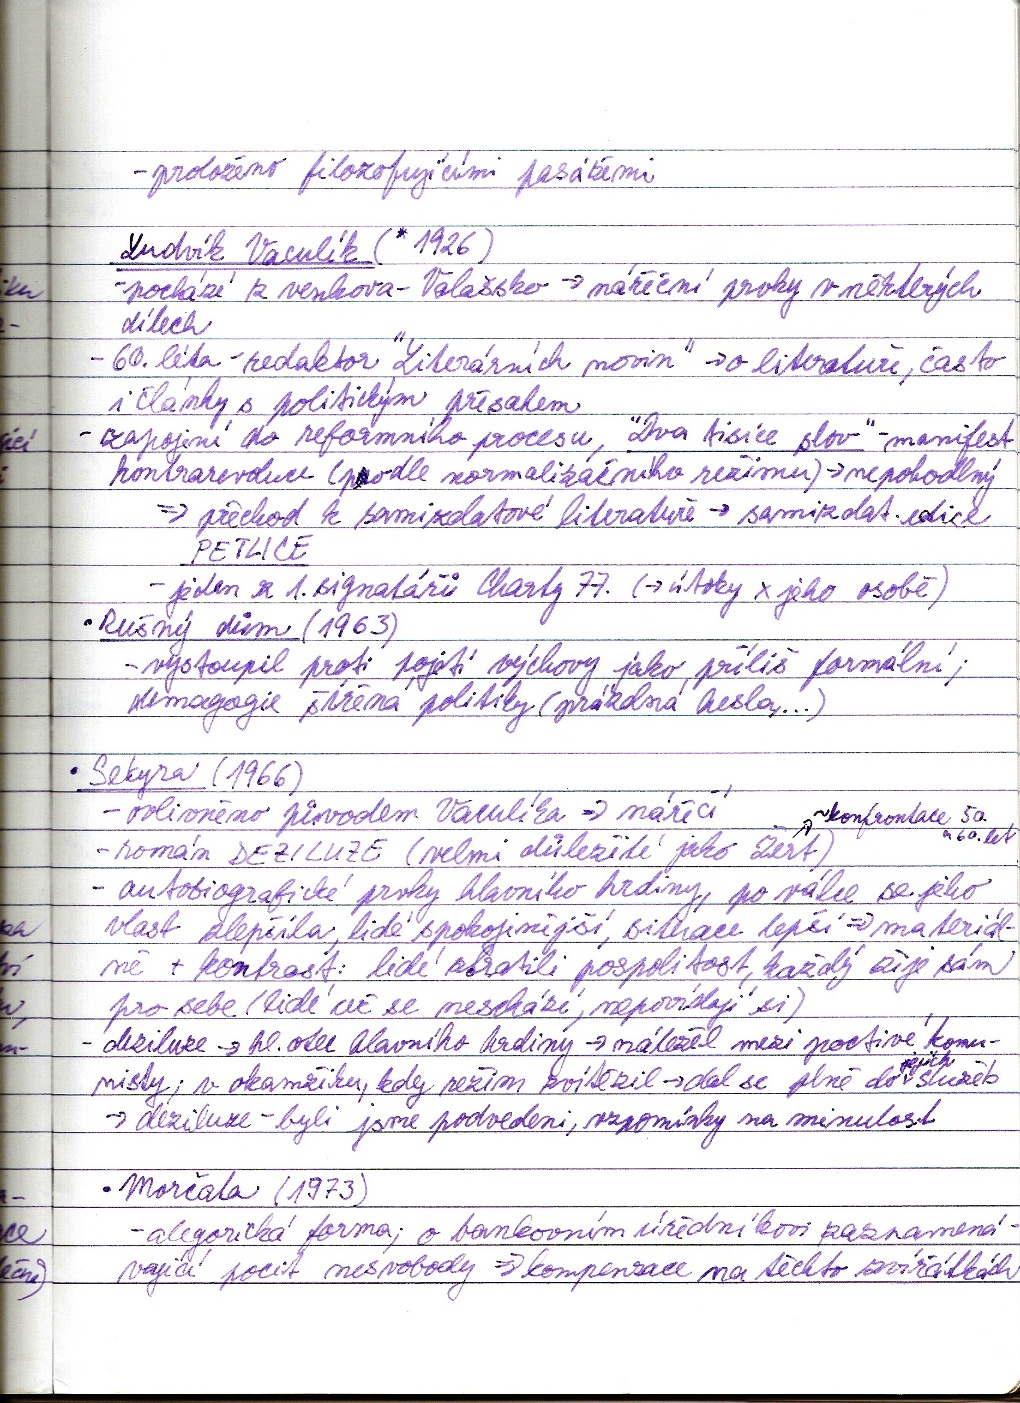 - proloženo filozofujícími pasážemi
Ludvík Vaculík (* 1926)
- pochází z venkova - Valašsko → nářeční prvky v některých
dílech
- 60. léta - redaktor "Literárních novin" → o literatuře, často
i články s politickým přesahem
- zapojení do reformního procesu, "Dva tisíce slov" - manifest
kontrarevoluce (podle normalizačního režimu) → nepohodlný
⇒ přechod k samizdatové literatuře → samizdat. edice
PETLICE
- jeden z 1. signatářů Charty 77. (→ útoky x jeho osobě)
• Rušný dům (1963)
- vystoupil proti pojetí výchovy jako příliš formální;
demagogie šířená politiky (prázdná hesla,...)
• Sekyra (1966)
- ovlivněno původem Vaculíka ⇒ nářečí
~konfrontace 50.
a 60. let
- román DEZILUZE (velmi důležité jako Žert)
- autobiografické prvky hlavního hrdiny, po válce se jeho
vlast zlepšila, lidé spokojenější, situace lepší ⇒ materiál-
ně + kontrast: lidé ztratili pospolitost, každý žije sám
pro sebe (lidé už se neschází, nepovídají si)
- deziluze → hl. otec hlavního hrdiny → náležel mezi poctivé komu-
nisty; v okamžiku, kdy režim zvítězil → dal se plně do jejich služeb
→ deziluze - byli jsme podvedeni, vzpomínky na minulost
• Morčata (1973)
- alegorická forma; o bankovním úředníkovi zaznamená-
vající pocit nesvobody ⇒ kompenzace na těchto zvířátkách